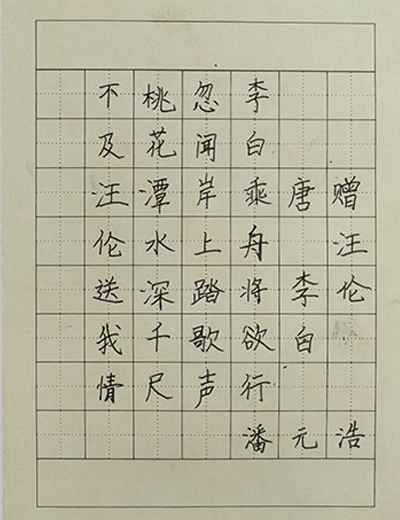 赠汪伦
唐 李白
李白乘舟将欲行
忽闻岸上踏歌声
桃花潭水深千尺
不及汪伦送我情
潘元浩